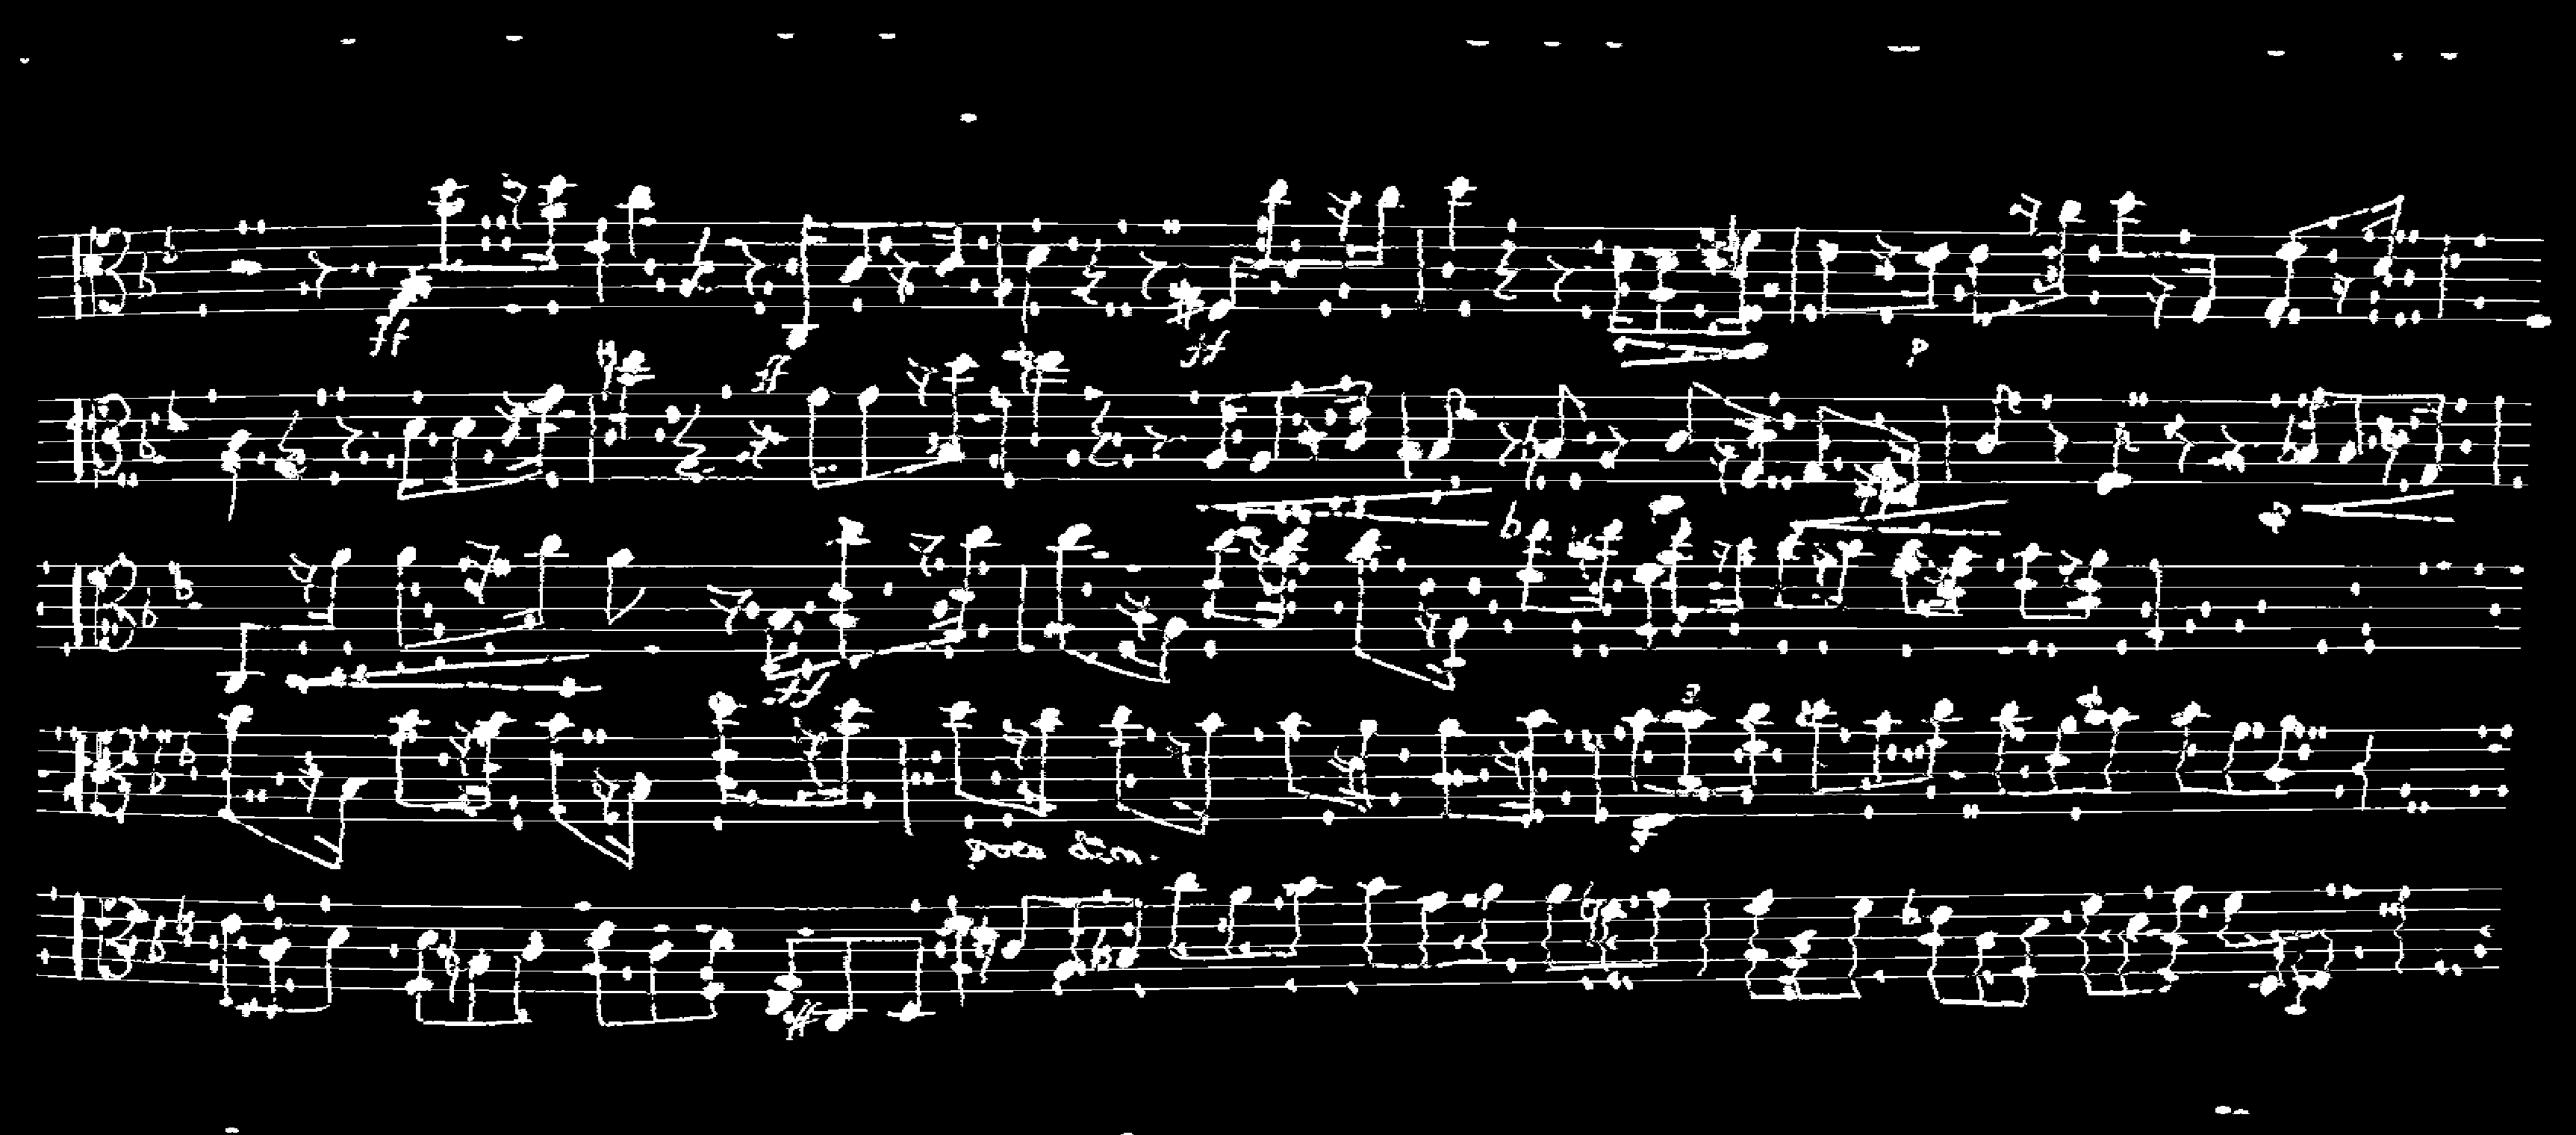 ff ff ff
p
ff
3
poco dim.